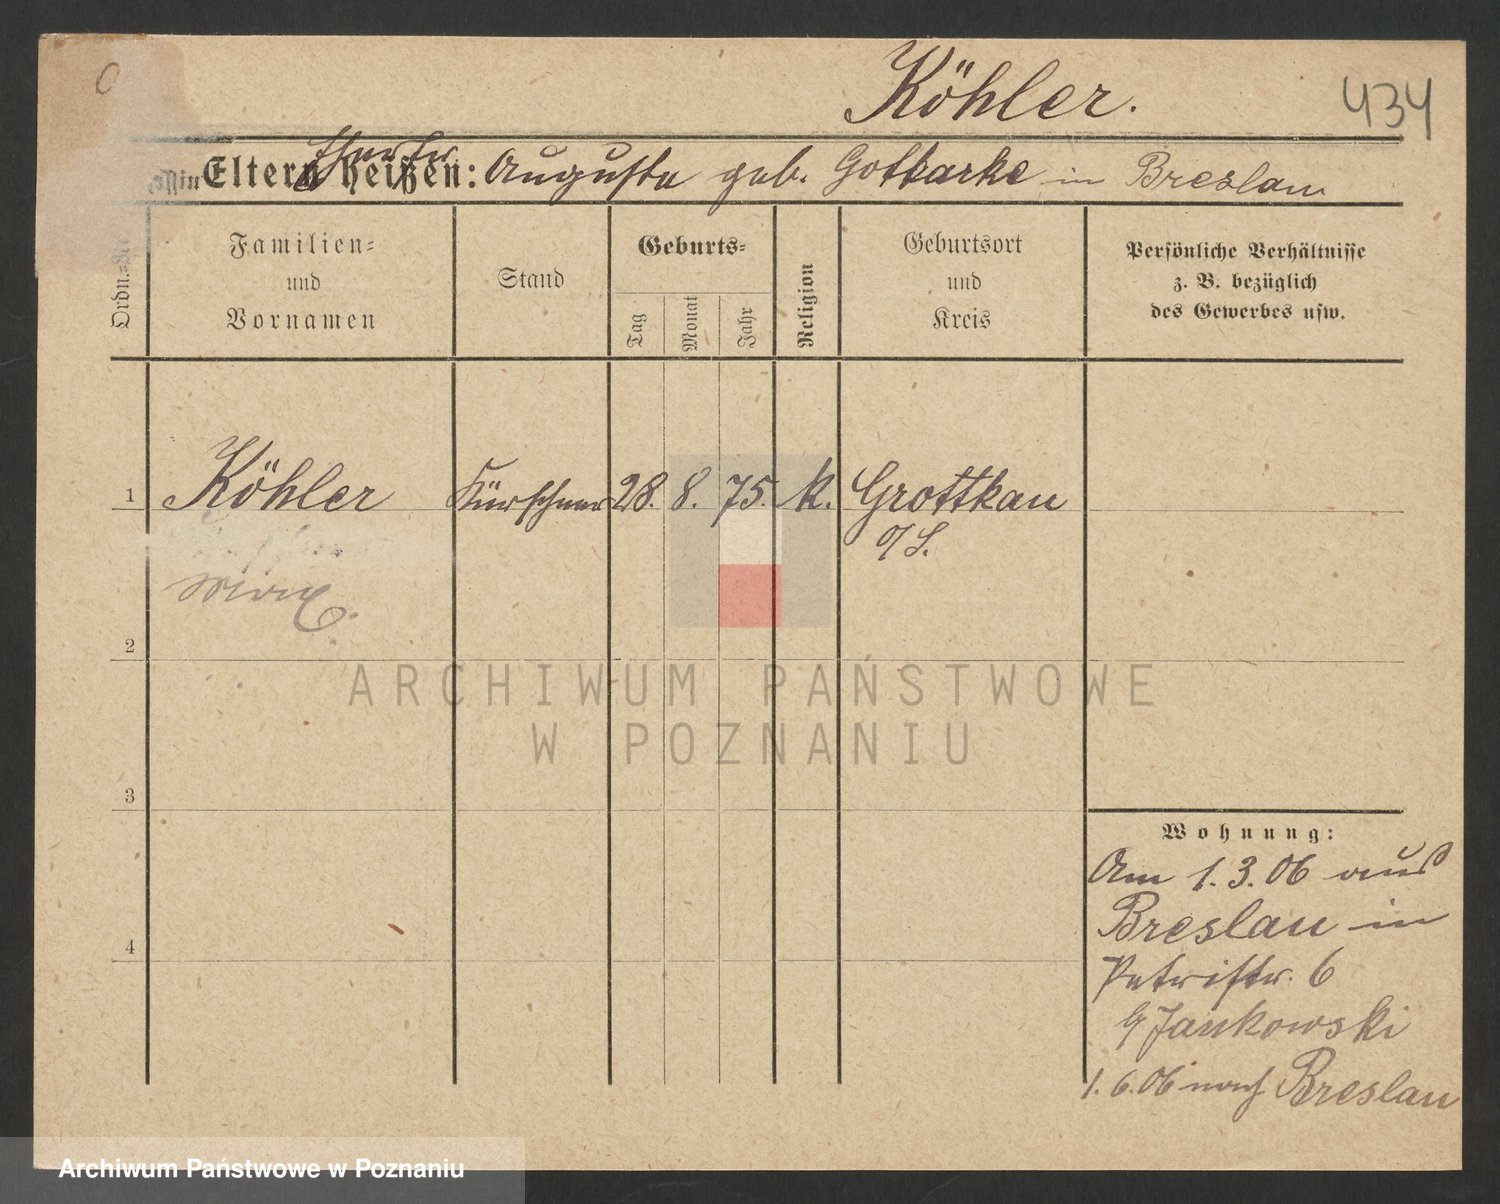 Köhler.
434
Eltern heißen: Auguste geb. Gottkarke in Breslau
Ordn.=Nr.
Familien=
und
Vornamen
Stand
Geburts=
Tag
Monat
Jahr
Religion
Geburtsort
und
Kreis
Persönliche Verhältnisse
z. B. bezüglich
des Gewerbes usw.
1 Köhler Kürschner 28. 8. 75. k. Grottkau
o/S.
2
3
4
Wohnung:
Am 1.3.06 aus
Breslau in
Petristr. 6
b/ Jankowski
1.6.06 nach Breslau
ARCHIWUM PAŃSTWOWE
W POZNANIU
Archiwum Państwowe w Poznaniu